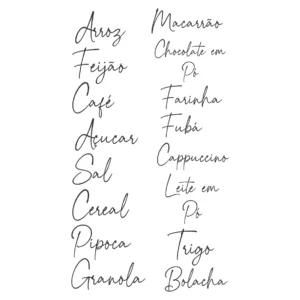 Arroz
Feijão
Café
Açucar
Sal
Cereal
Pipoca
Granola
Macarrão
Chocolate em
Pó
Farinha
Fubá
Cappuccino
Leite em
Pó
Trigo
Bolacha